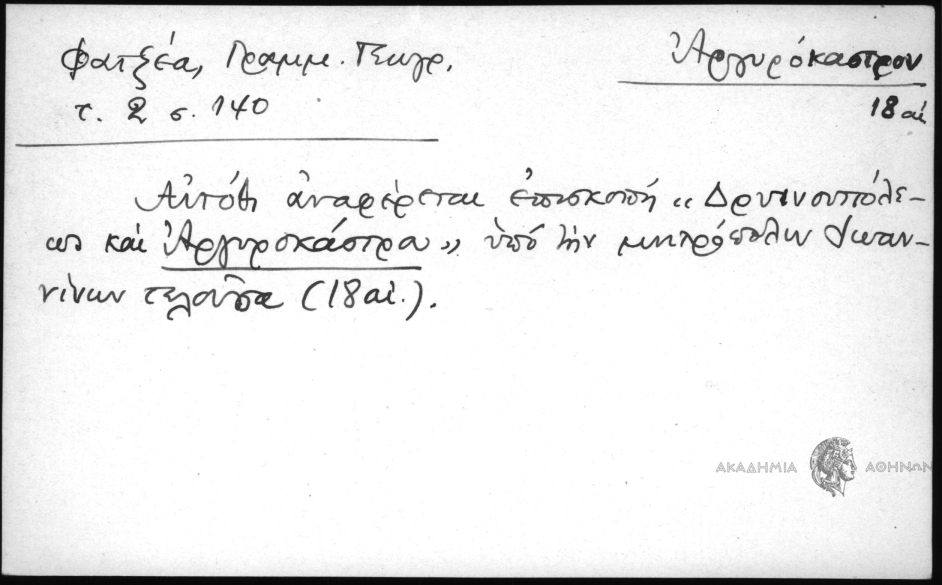 Φατζέα, Γραμμ. Γεωγρ.
τ. 2 σ. 140
Ἀργυρόκαστρον
18 αἰ
Αὐτόθι ἀναφέρεται ἐπισκοπή „Δρυϊνουπόλε-
ως καὶ Ἀργυροκάστρου„ ὑπό τὴν μητρόπολιν Ἰωαν-
νίνων τελοῦσα (18 αἰ.).
ΑΚΑΔΗΜΙΑ ΑΘΗΝΩΝ